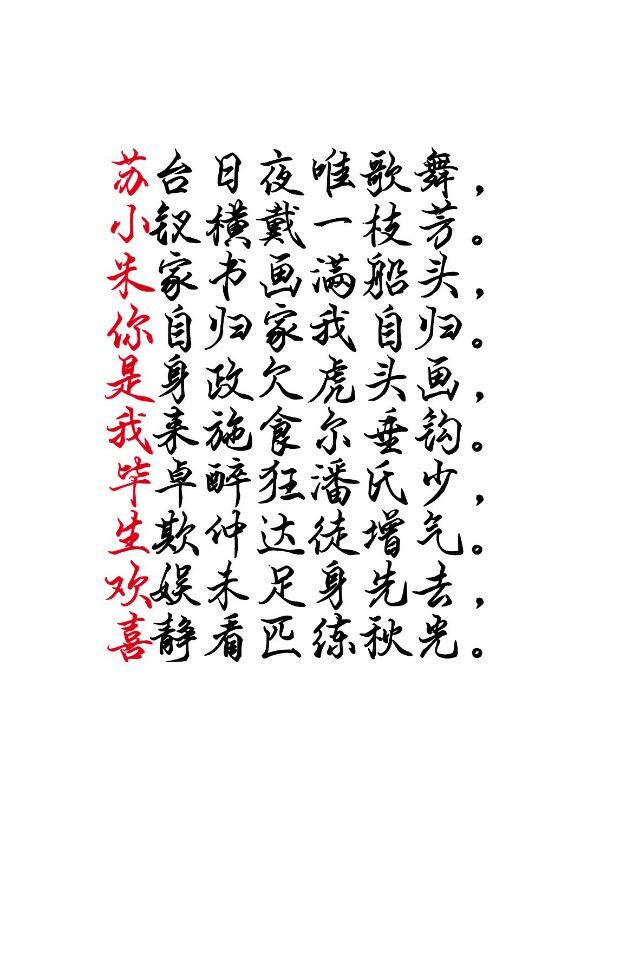 苏台日夜唯歌舞，
小钗横戴一枝芳。
米家书画满船头，
你自归家我自归。
是身政欠虎头画，
我来施食尔垂钩。
毕卓醉狂潘氏少，
生欺仲达徒增气。
欢娱未足身先去，
喜静看匹练秋光。